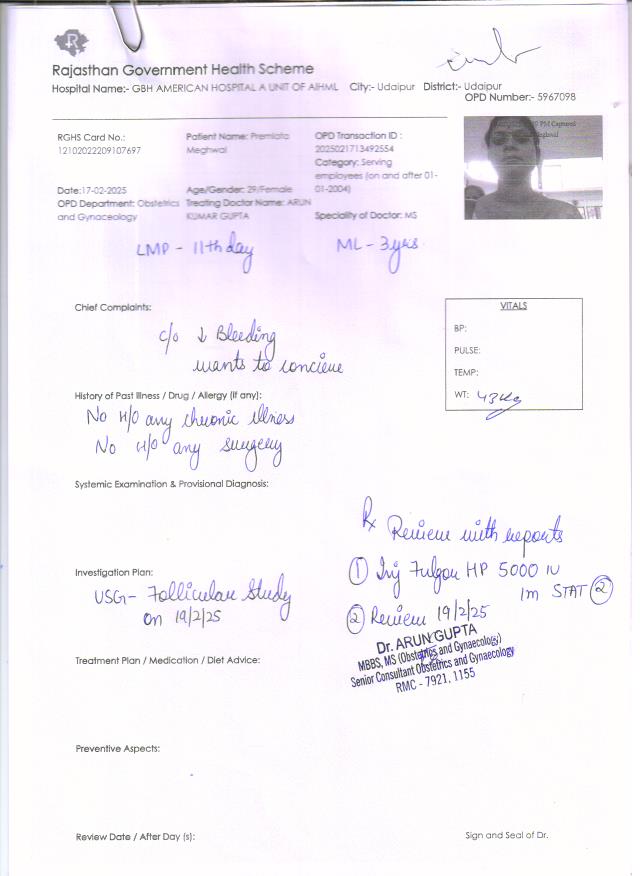 R
Rajasthan Government Health Scheme
Hospital Name:- GBH AMERICAN HOSPITAL A UNIT OF AIHML City:- Udaipur District:- Udaipur
OPD Number:- 5967098
RGHS Card No.:
12102022209107697
Patient Name: Premlata
Meghwal
OPD Transaction ID :
2025021713492554
Category: Serving
employees (on and after 01-
01-2004)
PM Captured
Meghwal
Date:17-02-2025
OPD Department: Obstetrics
and Gynaceology
Age/Gender: 29/Female
Treating Doctor Name: ARUN
KUMAR GUPTA
Speciality of Doctor: MS
LMP - 11th day ML - 3yrs.
Chief Complaints:
c/o ↓ Bleeding
wants to concieve
VITALS
BP:
PULSE:
TEMP:
WT: 43Kg
History of Past Illness / Drug / Allergy (if any):
No H/O any chronic illness
No H/O any surgery
Systemic Examination & Provisional Diagnosis:
Rx Review with reports
① Inj Fulgon HP 5000 IU
Im STAT ②
② Review 19/2/25
Investigation Plan:
USG- Follicular Study
on 19/2/25
Dr. ARUN GUPTA
MBBS, MS (Obstetrics and Gynaecology)
Senior Consultant Obstetrics and Gynaecology
RMC - 7921, 1155
Treatment Plan / Medication / Diet Advice:
Preventive Aspects:
Review Date / After Day (s):
Sign and Seal of Dr.